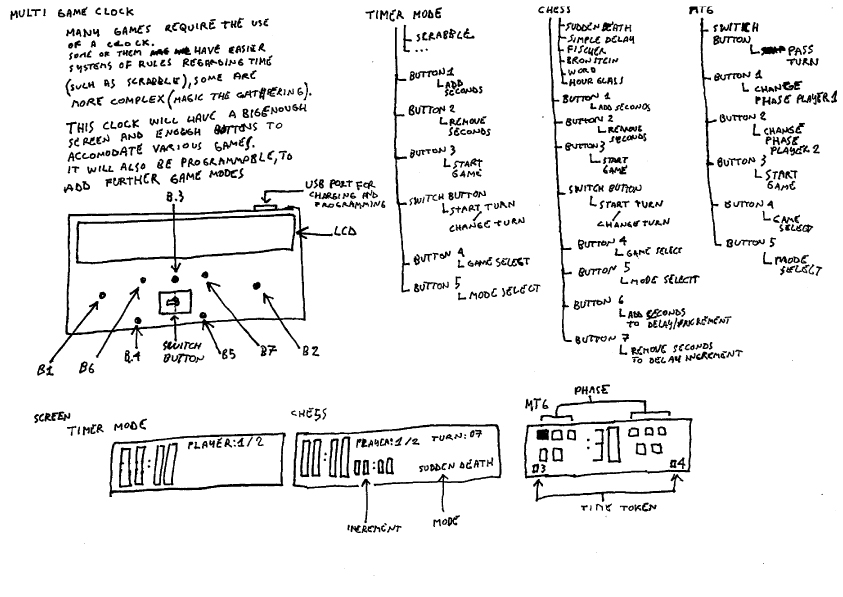 MULTI GAME CLOCK
MANY GAMES REQUIRE THE USE
OF A CLOCK.
SOME OR THEM HAVE EASIER
SYSTEMS OF RULES REGARDING TIME
(SUCH AS SCRABBLE), SOME ARE
MORE COMPLEX (MAGIC THE GATHERING).
THIS CLOCK WILL HAVE A BIG ENOUGH
SCREEN AND ENOUGH BUTTONS TO
ACCOMODATE VARIOUS GAMES.
IT WILL ALSO BE PROGRAMMABLE, TO
ADD FURTHER GAME MODES
B.3
USB PORT FOR
CHARGING AND
PROGRAMMING
LCD
B1
B6
B.4
SWITCH
BUTTON
B5
B7
B2
TIMER MODE
SCRABBLE
...
BUTTON 1
ADD
SECONDS
BUTTON 2
REMOVE
SECONDS
BUTTON 3
START
GAME
SWITCH BUTTON
START TURN
/
CHANGE TURN
BUTTON 4
GAME SELECT
BUTTON 5
MODE SELECT
CHESS
SUDDEN DEATH
SIMPLE DELAY
FISCHER
BRONSTEIN
WORD
HOUR GLASS
BUTTON 1
ADD SECONDS
BUTTON 2
REMOVE
SECONDS
BUTTON 3
START
GAME
SWITCH BUTTON
START TURN
/
CHANGE TURN
BUTTON 4
GAME SELECT
BUTTON 5
MODE SELECT
BUTTON 6
ADD SECONDS
TO DELAY/INCREMENT
BUTTON 7
REMOVE SECONDS
TO DELAY INCREMENT
MTG
SWITCH
BUTTON
PASS
TURN
BUTTON 1
CHANGE
PHASE PLAYER 1
BUTTON 2
CHANGE
PHASE
PLAYER 2
BUTTON 3
START
GAME
BUTTON 4
GAME
SELECT
BUTTON 5
MODE
SELECT
SCREEN
TIMER MODE
PLAYER:1/2
CHESS
PLAYER:1/2 TURN:07
SUDDEN DEATH
INCREMENT
MODE
PHASE
MTG
3
4
TIME TOKEN